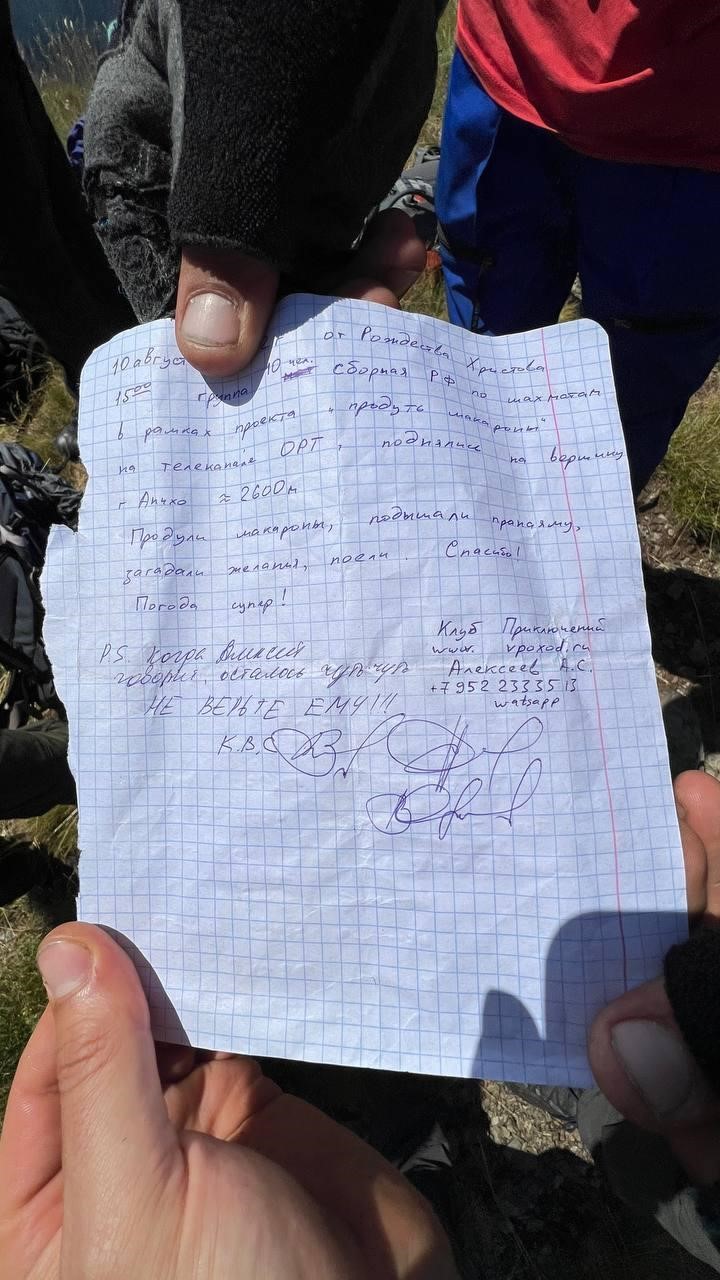 10 август от Рождества Христова
15⁰⁰ группа 10 чел. Сборная РФ по шахматам
в рамках проекта "продуть макароны"
на телеканале ОРТ, поднялись на вершину
г Апчхо ≈ 2600м
Продули макароны, подышали пранаяму,
загадали желания, поели. Спасибо!
Погода супер!
P.S. Когда Алексей
говорит, осталось чуть-чуть
НЕ ВЕРЬТЕ ЕМУ!!!
К.В.С
Клуб Приключений
www. vpoxod.ru
Алексеев А.С.
+7 952 23335 13
watsapp